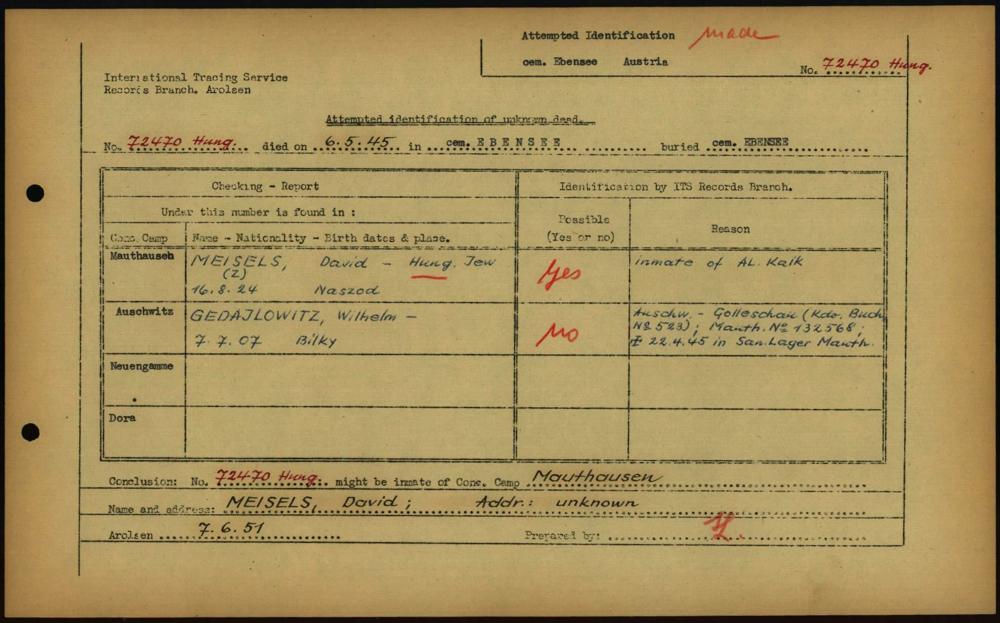 Attempted Identification made
cem. Ebensee Austria
No. 72470 Hung.
International Tracing Service
Records Branch, Arolsen
Attempted identification of unknown dead.
No. 72470 Hung. died on 6.5.45 in cem. EBENSEE buried cem. EBENSEE
Checking - Report
Identification by ITS Records Branch.
Under this number is found in :
Possible
(Yes or no)
Reason
Conc. Camp
Name - Nationality - Birth dates & place.
Mauthausen
MEISELS, David - Hung. Jew
(Z)
16.8.24 Naszod
Yes
inmate of AL. Kaik
Auschwitz
GEDAJLOWITZ, Wilhelm -
7.7.07 Bilky
No
Auschw. - Golleschau (Kdo. Buch
No 523); Mauth. No 132568;
‡ 22.4.45 in San. Lager Mauth.
Neuengamme
Dora
Conclusion: No. 72470 Hung. might be inmate of Conc. Camp Mauthausen
Name and address: MEISELS, David; Addr.: unknown
Arolsen 7.6.51 Prepared by: